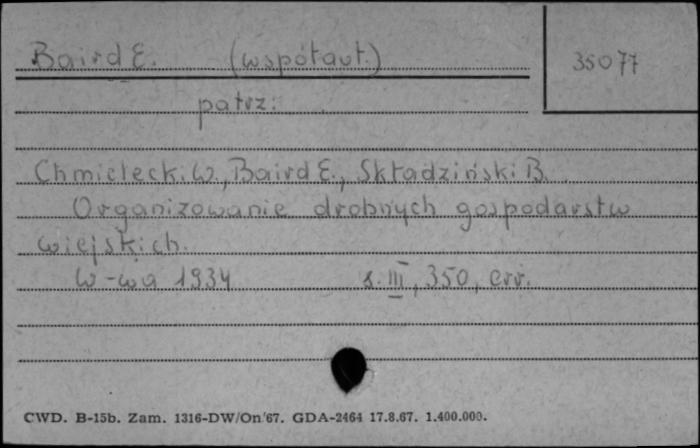 Baird E. (współaut.)
35077
patrz:
Chmielecki W., Baird E., Składziński B.
Organizowanie drobnych gospodarstw
wiejskich.
W-wa 1934 s. III, 350, err.
CWD. B-15b. Zam. 1316-DW/On/67. GDA-2464 17.8.67. 1.400.000.